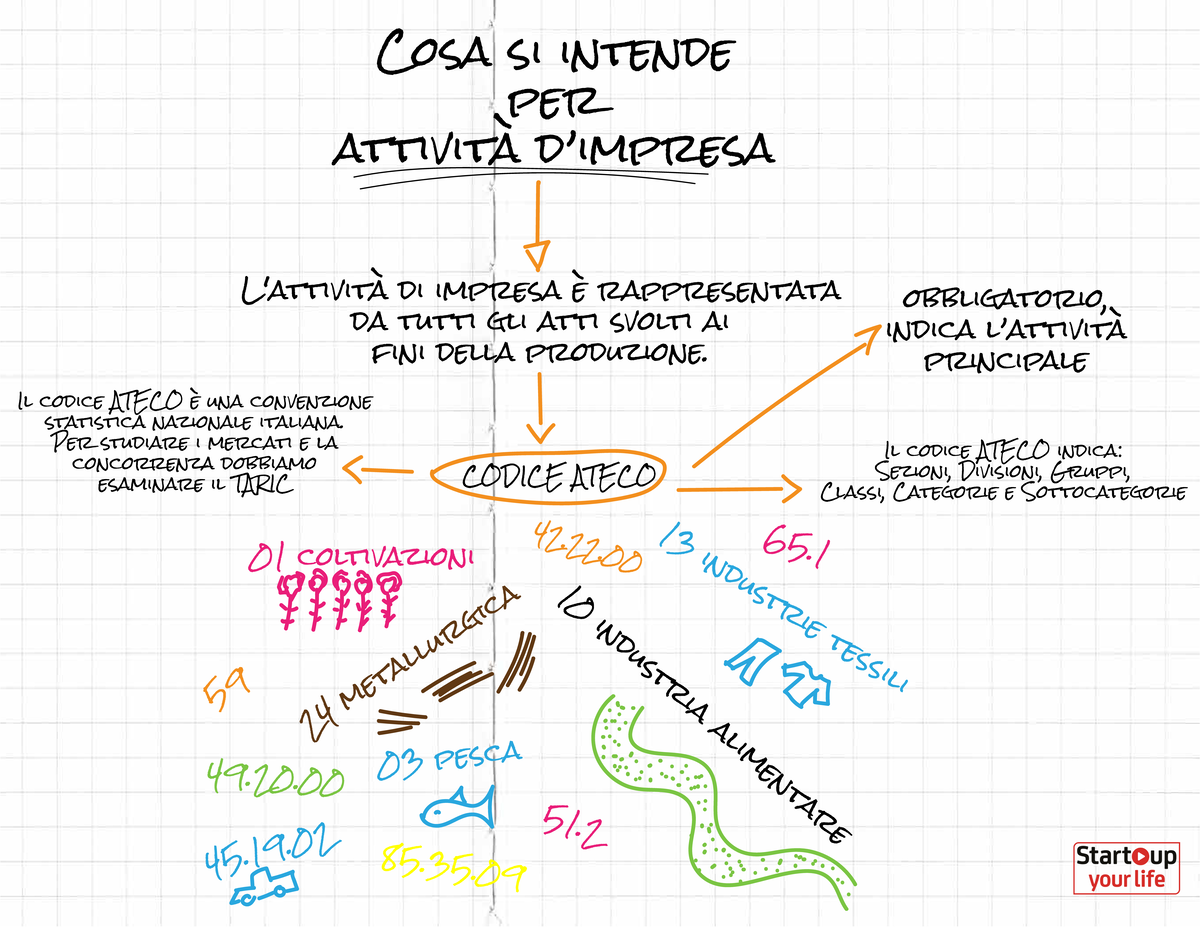 Cosa si intende
per
attività d'impresa
L'attività di impresa è rappresentata
da tutti gli atti svolti ai
fini della produzione.
obbligatorio,
indica l'attività
principale
Il codice ATECO è una convenzione
statistica nazionale italiana.
Per studiare i mercati e la
concorrenza dobbiamo
esaminare il TARIC
CODICE ATECO
Il codice ATECO indica:
Sezioni, Divisioni, Gruppi,
Classi, Categorie e Sottocategorie
01 coltivazioni
42.22.00
13 industrie tessili
65.1
24 metallurgica
10 industria alimentare
59
49.20.00
03 pesca
51.2
45.19.02
85.35.09
Start up
your life